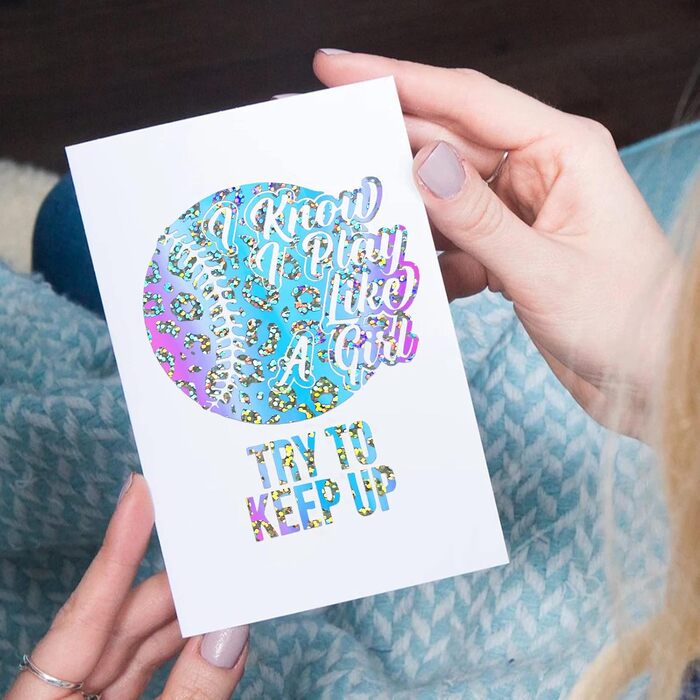 I Know
I Play
Like
A Girl
TRY TO
KEEP UP